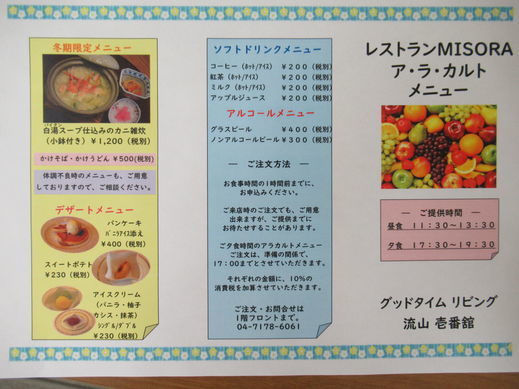 冬期限定メニュー
パイタン
白湯スープ仕込みのカニ雑炊
(小鉢付き) ¥1,200 (税別)
かけそば・かけうどん ¥500(税別)
体調不良時のメニューも、ご用意
しておりますので、ご相談ください。
デザートメニュー
パンケーキ
バニラアイス添え
¥400 (税別)
スイートポテト
¥230 (税別)
アイスクリーム
(バニラ・柚子
カシス・抹茶)
シングル/ダブル
¥230 (税別)
ソフトドリンクメニュー
コーヒー (ホット/アイス) ¥200 (税別)
紅茶 (ホット/アイス) ¥200 (税別)
ミルク (ホット/アイス) ¥200 (税別)
アップルジュース ¥200 (税別)
アルコールメニュー
グラスビール ¥400 (税別)
ノンアルコールビール ¥300 (税別)
― ご注文方法 ―
お食事時間の1時間前までに、
お申込みください。
ご来店時のご注文でも、ご用意
出来ますが、ご提供までに
お待たせすることがあります。
ご夕食時間のアラカルトメニュー
ご注文は、準備の関係で、
17:00までとさせていただきます。
それぞれの金額に、10%の
消費税を加算させていただきます。
ご注文・お問合せは
1階フロントまで。
04-7178-6061
レストランMISORA
ア・ラ・カルト
メニュー
― ご提供時間 ―
昼食 11:30~13:30
夕食 17:30~19:30
グッドタイム リビング
流山 壱番館